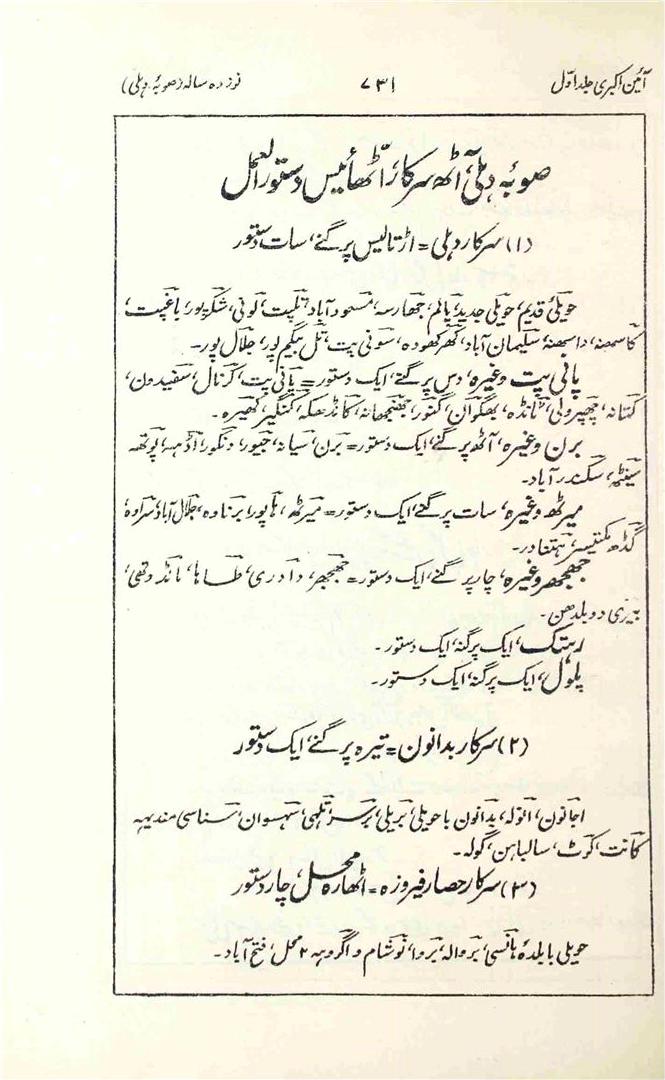 آئین اکبری جلد اوّل
۷۳۱
نوزدہ سالہ (صوبۂ دہلی)
صوبۂ دہلی، آٹھ سرکار، اٹھائیس دستور العمل
(۱) سرکار دہلی = اڑتالیس پرگنے، سات دستور
حویلیٔ قدیم، حویلی جدید، پالم، جھارسہ، مسعود آباد، تلپت، لونی، شکرپور، باغپت،
کاسمھنہ، داسھنہ، سلیمان آباد، کھرکھودہ، سونی پت، تل بیگم پور، جلال پور۔
پانی پت وغیرہ، دس پرگنے، ایک دستور = پانی پت، کرنال، سفیدون،
کتانہ، چھپرولی، ٹانڈہ، بھگوان، گنور، جھنجھانہ، کاندھلہ، گنگیر کھیرہ۔
برن وغیرہ، آٹھ پرگنے، ایک دستور = برن، سیانہ، جیور، دنکور، اڈہہ، پوٹھہ
سینٹھہ، سکندر آباد۔
میرٹھ وغیرہ، سات پرگنے، ایک دستور = میرٹھ، ہاپور، برناوہ، جلال آباد، سراوہ
گڈھ مکتیسر، ہتنادر۔
جھجھر وغیرہ، چار پرگنے، ایک دستور = جھجھر، دادری، طاہا، مانڈوتھی،
بیری دوبلدھن۔
رہتک، ایک پرگنہ، ایک دستور۔
پلول، ایک پرگنہ، ایک دستور۔
(۲) سرکار بدانون = تیرہ پرگنے، ایک دستور
اجانون، انولہ، بدانون با حویلی، بریلی، برسر، تلہی، سہسوان، سناسی مندیہہ
کانت، کوٹ، سالباہن، گولہ۔
(۳) سرکار حصار فیروزہ = اٹھارہ محل، چار دستور
حویلی با بلدہ ہانسی، بروالہ، بروا، توشام و اگروہہ ۲ محل، فتح آباد۔